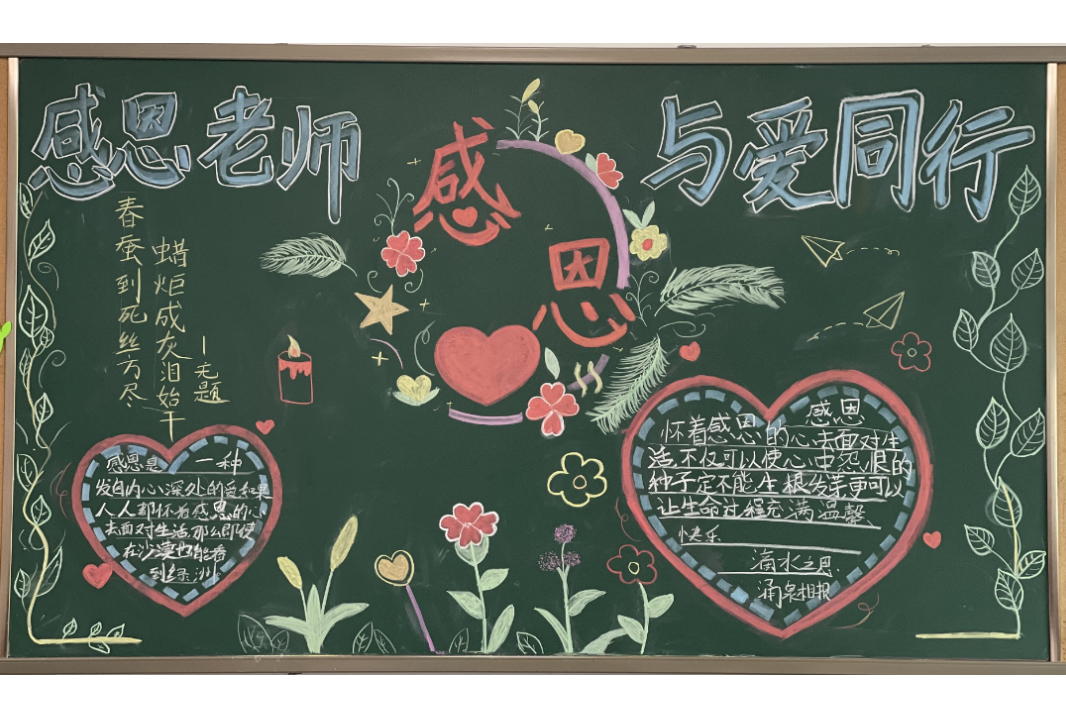 感恩老师
与爱同行
感
恩
春蚕到死丝方尽
蜡炬成灰泪始干
一无题
感恩是 一种
发自内心深处的爱如果
人人都怀着感恩的心
去面对生活那么即使
在沙漠也能看
到绿洲
感恩
怀着感恩的心去面对生
活,不仅可以使心中怨恨的
种子定不能生根发芽更可以
让生命过程充满温馨
快乐
滴水之恩
涌泉相报